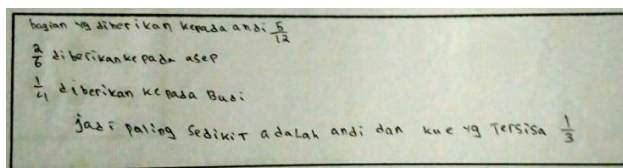 bagian yg diberikan kepada andi 5/12
2/6 diberikan kepada asep
1/4 diberikan kepada Budi
jadi paling sedikit adalah andi dan kue yg Tersisa 1/3